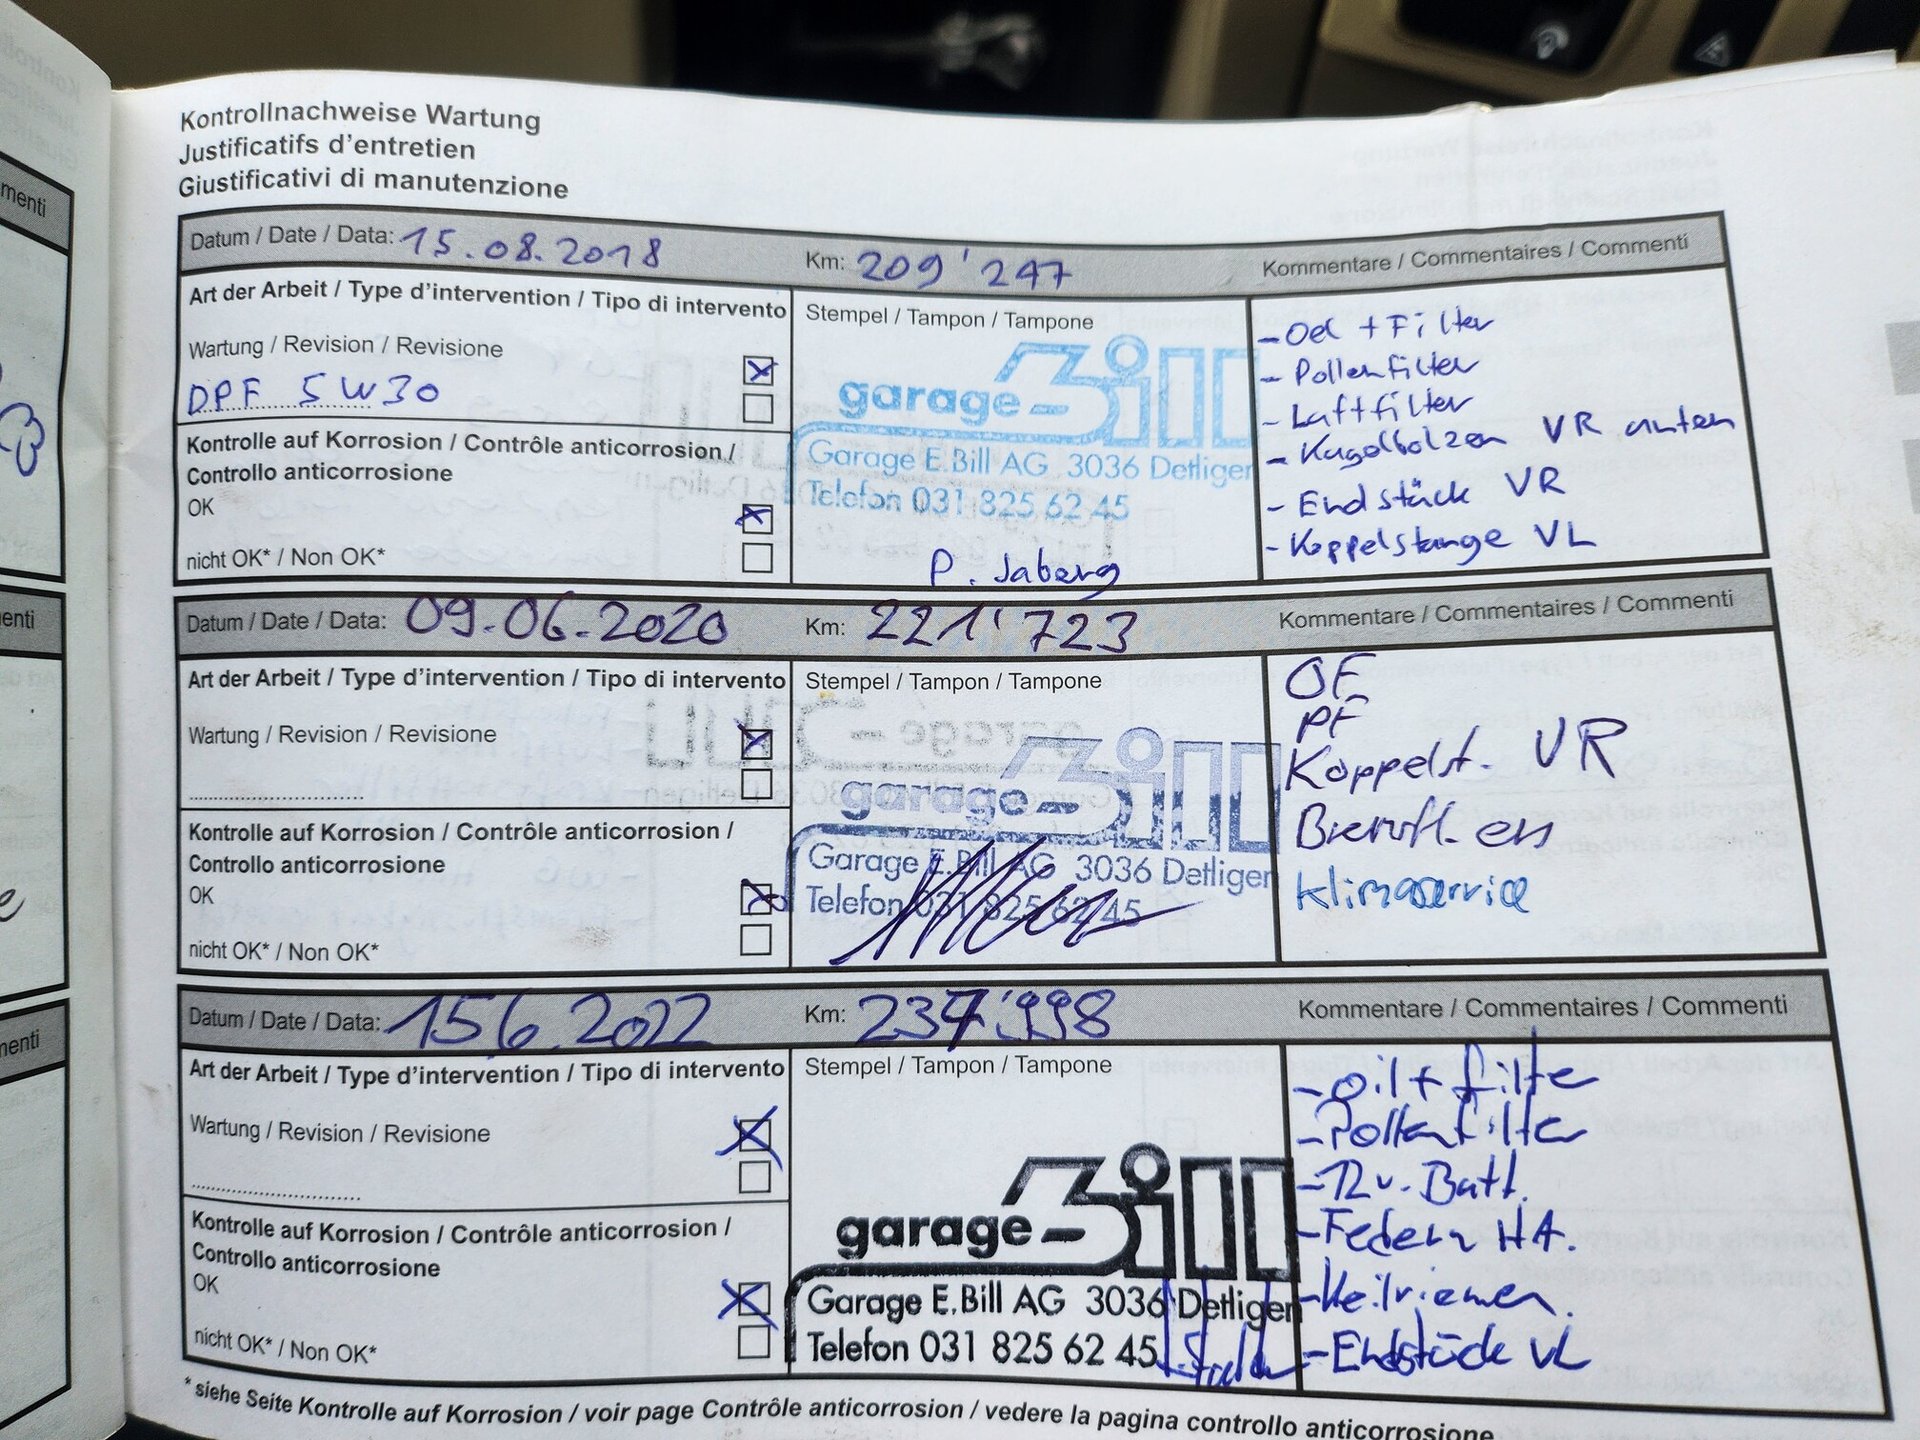 Kontrollnachweise Wartung
Justificatifs d'entretien
Giustificativi di manutenzione
Datum / Date / Data: 15.08.2018 Km: 209'247 Kommentare / Commentaires / Commenti
Art der Arbeit / Type d'intervention / Tipo di intervento
Wartung / Revision / Revisione
DPF 5W30
Kontrolle auf Korrosion / Contrôle anticorrosion /
Controllo anticorrosione
OK
nicht OK* / Non OK*
Stempel / Tampon / Tampone
garage Bill
Garage E.Bill AG 3036 Detligen
Telefon 031 825 62 45
P. Jaberg
- Oel + Filter
- Pollenfilter
- Luftfilter
- Kugelbolzen VR unten
- Endstück VR
- Koppelstange VL
Datum / Date / Data: 09.06.2020 Km: 221'723 Kommentare / Commentaires / Commenti
Art der Arbeit / Type d'intervention / Tipo di intervento
Wartung / Revision / Revisione
Kontrolle auf Korrosion / Contrôle anticorrosion /
Controllo anticorrosione
OK
nicht OK* / Non OK*
Stempel / Tampon / Tampone
garage Bill
Garage E.Bill AG 3036 Detligen
Telefon 031 825 62 45
OF
PF
Koppelst. VR
Klimaservice
Datum / Date / Data: 15 6. 2022 Km: 237'998 Kommentare / Commentaires / Commenti
Art der Arbeit / Type d'intervention / Tipo di intervento
Wartung / Revision / Revisione
Kontrolle auf Korrosion / Contrôle anticorrosion /
Controllo anticorrosione
OK
nicht OK* / Non OK*
Stempel / Tampon / Tampone
garage Bill
Garage E.Bill AG 3036 Detligen
Telefon 031 825 62 45
- Oil + Filter
- Pollenfilter
- 12v. Batt.
- Federn HA.
- Keilriemen.
- Endstück VL
* siehe Seite Kontrolle auf Korrosion / voir page Contrôle anticorrosion / vedere la pagina controllo anticorrosione
menti
enti
menti